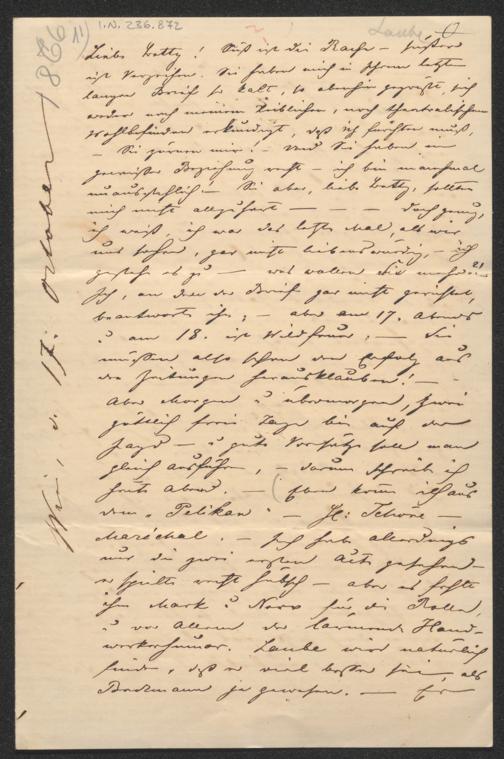 I.N. 236.872
Laube
1866
Wien, d. 17. October
Liebe Betty! Süß ist die Rache – süßer
ist Verzeihen. Sie haben mich in Ihrem letzten
langen Brief so kalt, so obenhin gegrüßt, sich
weder nach meinem leiblichen, noch theatralischen
Wohlbefinden erkundigt, daß ich fürchten muß,
– Sie zürnen mir! – Und Sie haben in
gewisser Beziehung recht – ich bin manchmal
unausstehlich! Sie aber, liebe Betty, sollten
mich nicht allzuhart – – doch genug,
ich weiß, ich war das letzte Mal, als wir
uns sahen, gar nicht liebenswürdig, – ich
gestehe es zu – was wollen Sie mehr?!
Ich, an den der Brief gar nicht gerichtet,
beantworte ihn; – aber am 17. Abends
u am 18. ist Wildfeuer, – Sie
müssen also schon den Erfolg aus
den Zeitungen herausklauben! –
Aber Morgen u übermorgen, zwei
göttlich freie Tage bis auf den
– u gute Vorsätze soll man
gleich ausführen, – darum schreib ich
heute Abend. – Eben komm ich aus
dem „Pelikan" – H:
Maréchal. – Ich habe allerdings
nur die zwei ersten Acte gesehen –
er spielte recht hübsch – aber es fehlte
ihm Mark u Nerv für die Rolle,
u vor Allem der Hand-
werkerhumor. Laube wird natürlich
finden, daß er viel besser sei, als
je gewesen. – Er